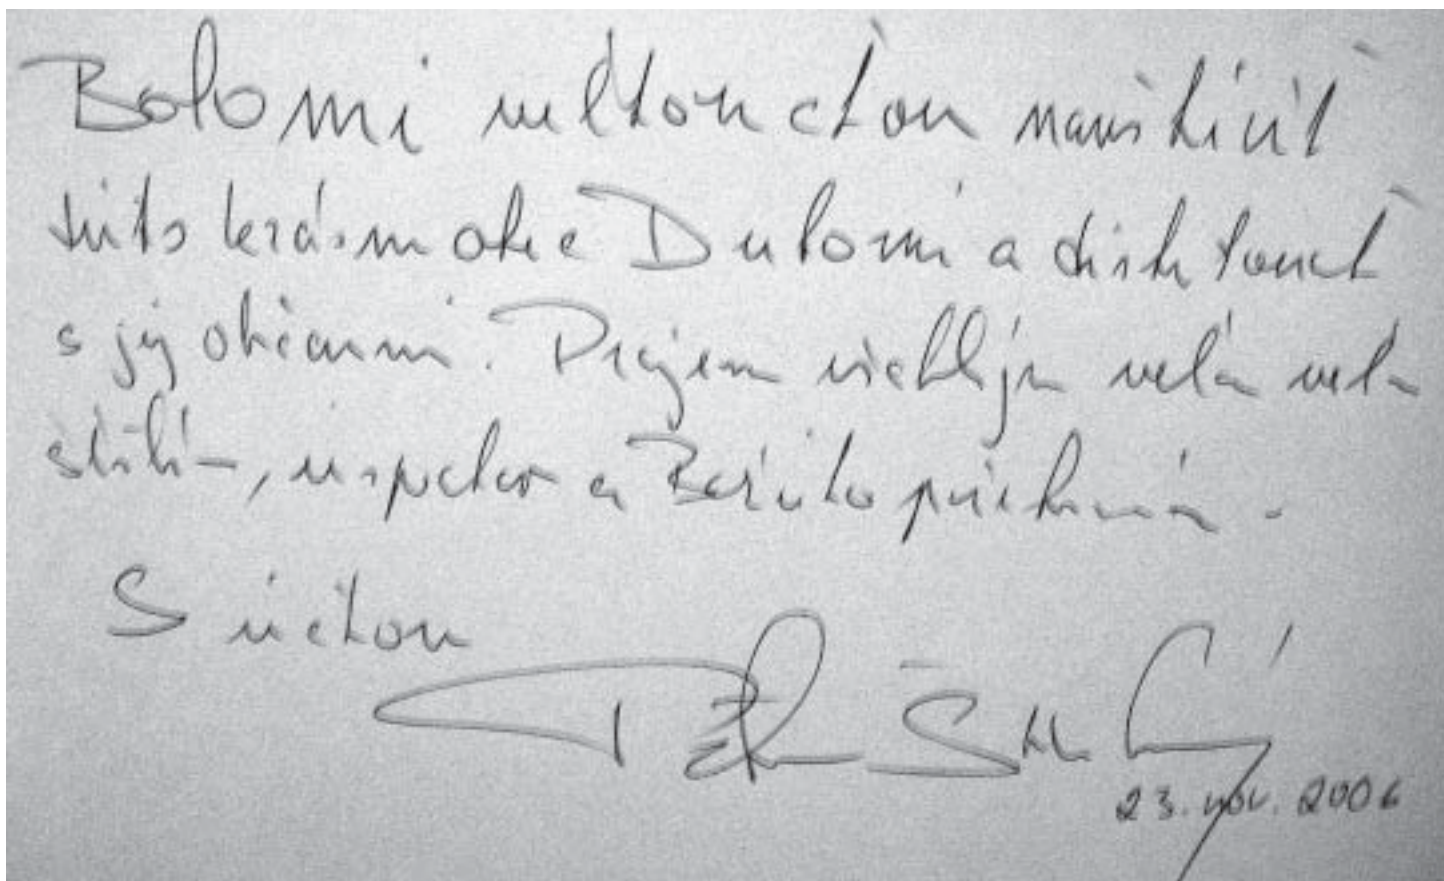 Bolo mi veľkou cťou navštíviť
túto krásnu obec Dulovu a diskutovať
s jej občanmi. Prajem všetkým veľa veľa
šťastia, úspechov a Božieho požehnania.
S úctou
23. nov. 2006